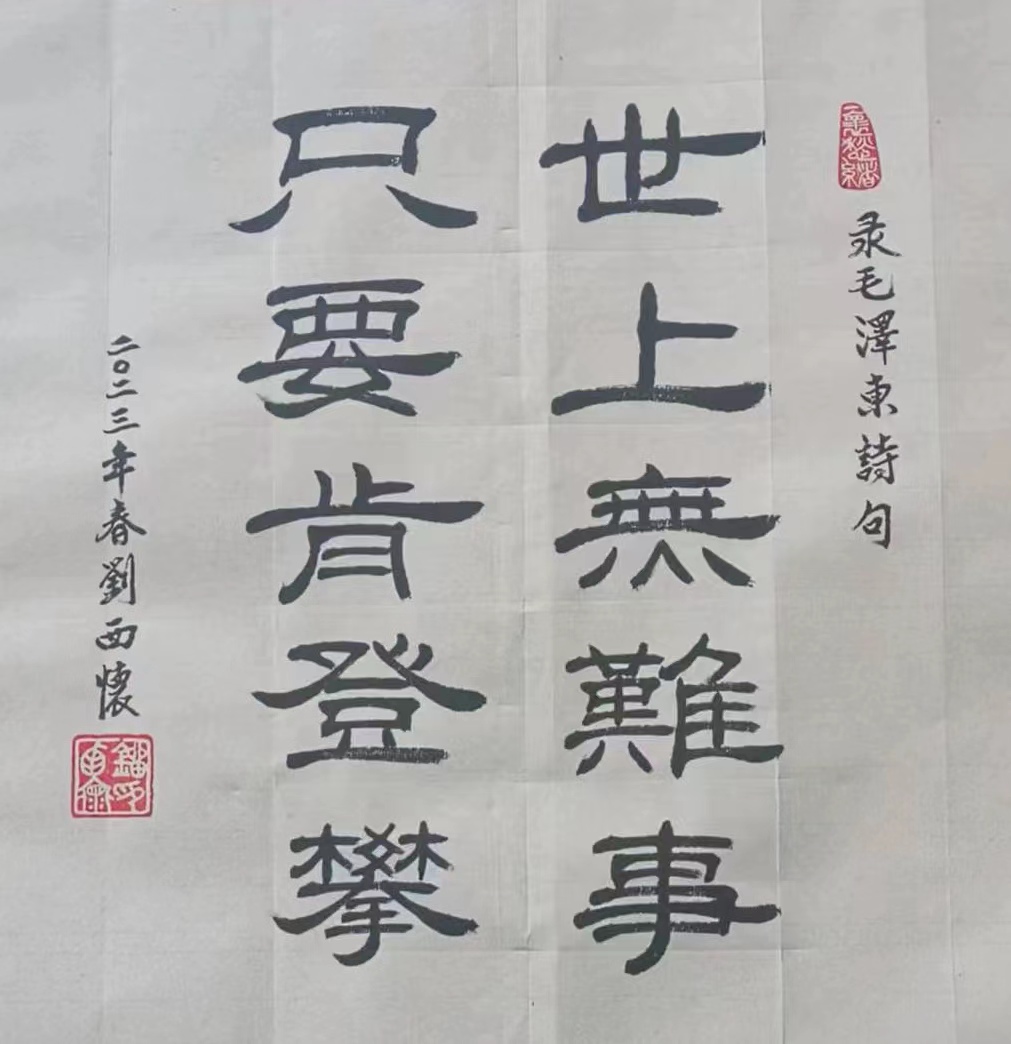 录毛澤東詩句
世上無難事
只要肯登攀
二〇二三年春劉西懷